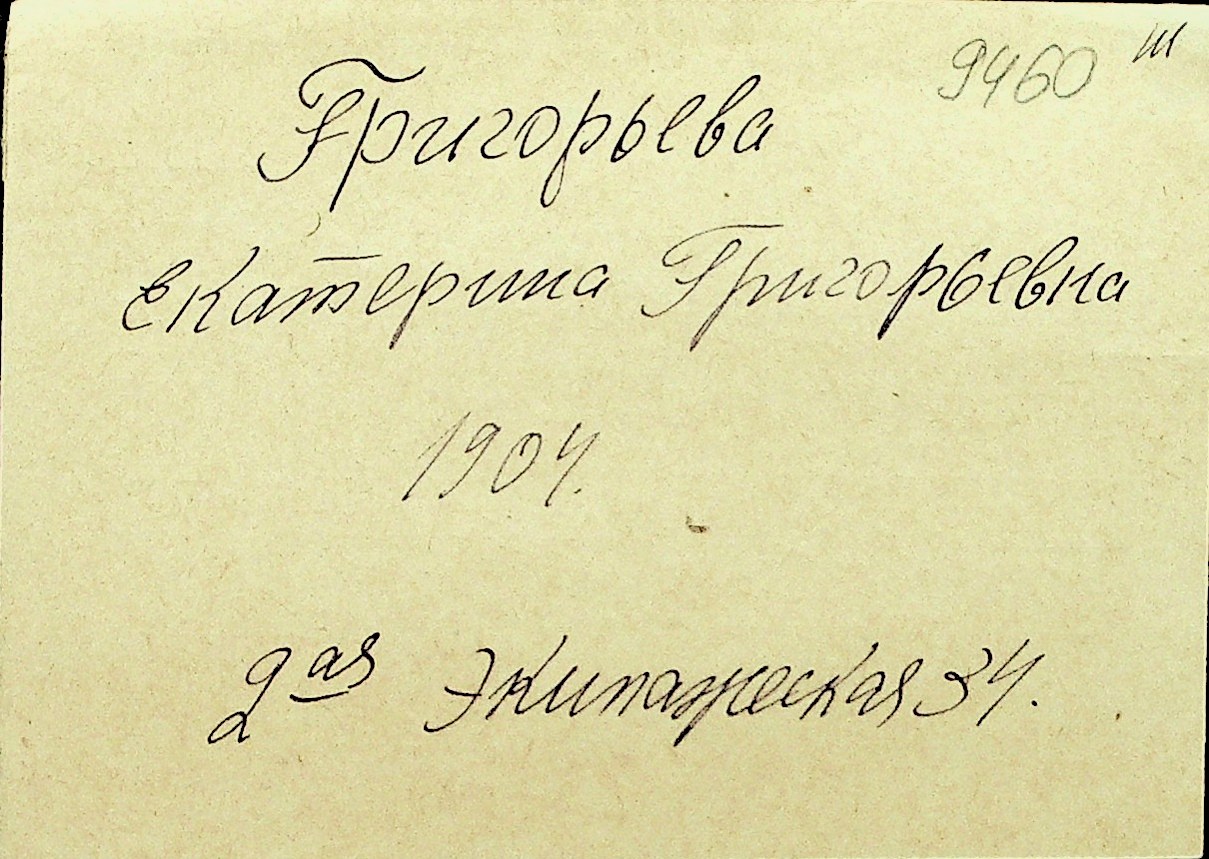 9460 III
Григорьева
Екатерина Григорьевна
1904.
2ая Экипажеская 34.